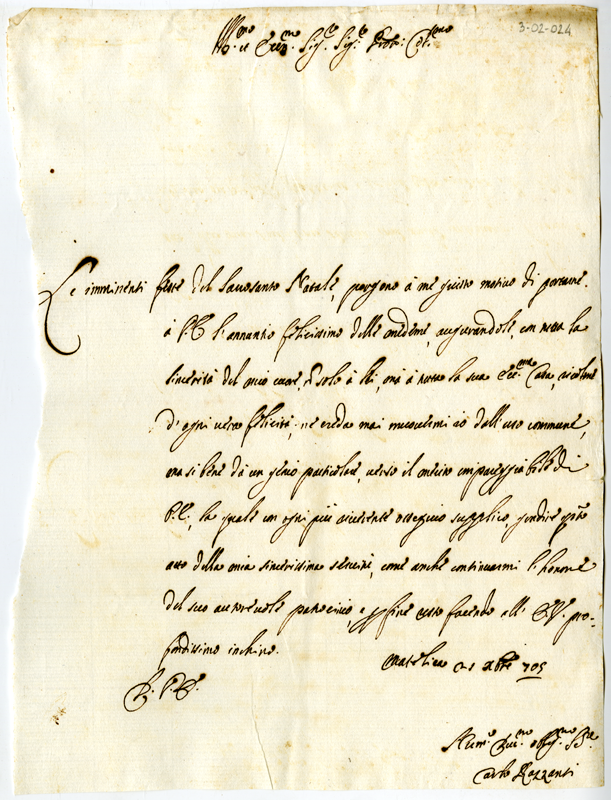 3-02-024
Ill.mo et Ecc.mo Sig.re Sig.re Pron: Col.mo
Le imminenti feste del Sacrosanto Natale, porgono à me giusto motivo di portarne
à V.E. l'annuntio felicissimo delle medeme, augurandole, con tutta la
sincerità del mio cuore, à Lei, mà à tutta la sua Ecc.ma Casa,
d'ogni vera felicità; nè creda mai muovermi io dall'uso commune,
mà si bene dà un genio particolare, verso il merito impareggiabile di
V.E., la quale con ogni più ossequio supplico, gradire
atto della mia sincerissima servitù, come anche continuarmi l'honore
del suo autorevole patrocinio, e resto facendo all' E.V. pro-
fondissimo inchino.
Matelica 21 Xbre 705
D. V. E.
Hum.o Dev.mo Obb.mo Se.re
Carlo Razzanti